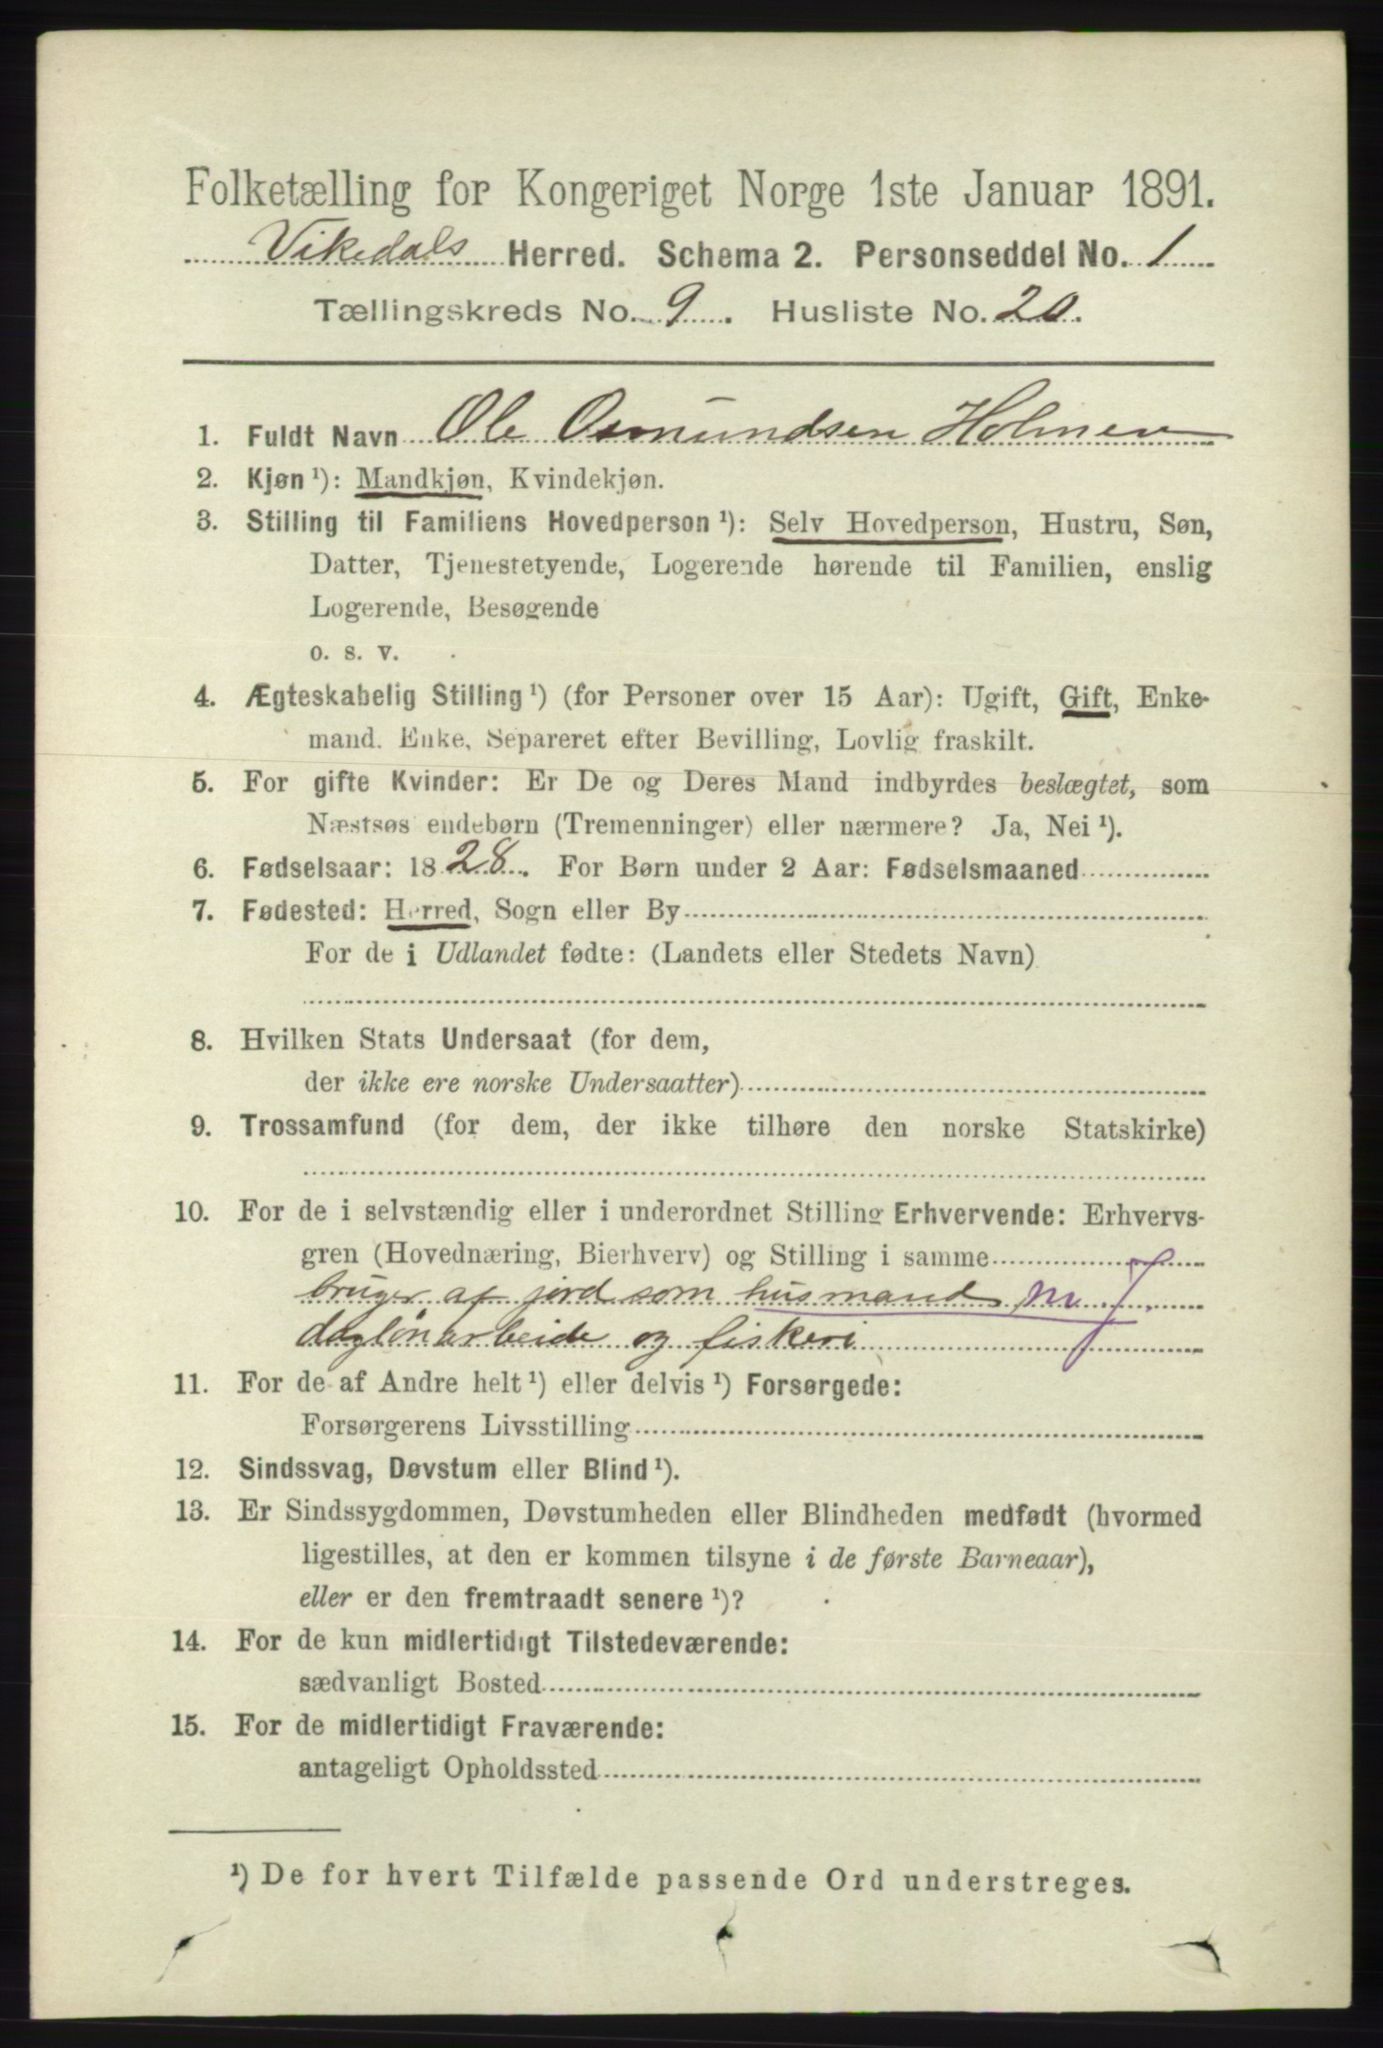 Folketælling for Kongeriget Norge 1ste Januar 1891.
Vikedals Herred. Schema 2. Personseddel No. 1
Tællingskreds No. 9. Husliste No. 20.
1. Fuldt Navn Ole Osmundsen Holmen
2. Kjøn ¹): Mandkjøn, Kvindekjøn.
3. Stilling til Familiens Hovedperson ¹): Selv Hovedperson, Hustru, Søn,
Datter, Tjenestetyende, Logerende hørende til Familien, enslig
Logerende, Besøgende
o. s. v.
4. Ægteskabelig Stilling ¹) (for Personer over 15 Aar): Ugift, Gift, Enke-
mand. Enke, Separeret efter Bevilling, Lovlig fraskilt.
5. For gifte Kvinder: Er De og Deres Mand indbyrdes beslægtet, som
Næstsøs endebørn (Tremenninger) eller nærmere? Ja, Nei ¹).
6. Fødselsaar: 1828. For Børn under 2 Aar: Fødselsmaaned
7. Fødested: Herred, Sogn eller By
For de i Udlandet fødte: (Landets eller Stedets Navn)
8. Hvilken Stats Undersaat (for dem,
der ikke ere norske Undersaatter)
9. Trossamfund (for dem, der ikke tilhøre den norske Statskirke)
10. For de i selvstændig eller i underordnet Stilling Erhvervende: Erhvervs-
gren (Hovednæring, Bierhverv) og Stilling i samme
bruger af jord som husmand m. J.
daglønarbeide og fiskeri
11. For de af Andre helt ¹) eller delvis ¹) Forsørgede:
Forsørgerens Livsstilling
12. Sindssvag, Døvstum eller Blind ¹).
13. Er Sindssygdommen, Døvstumheden eller Blindheden medfødt (hvormed
ligestilles, at den er kommen tilsyne i de første Barneaar),
eller er den fremtraadt senere ¹)?
14. For de kun midlertidigt Tilstedeværende:
sædvanligt Bosted
15. For de midlertidigt Fraværende:
antageligt Opholdssted
¹) De for hvert Tilfælde passende Ord understreges.